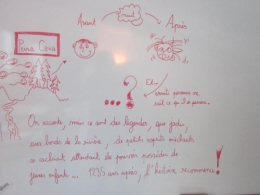 Avant
Travail
Après
Pena Cova
...?
Et...
année personne ne
sait ce qu'il se passe.
On raconte, mais ce sont des légendes, que jadis,
aux bords de la rivière, des petits esprits méchants
se cachent attendant de pouvoir posséder de
jeunes enfants... 1235 ans après, l'histoire recommence !